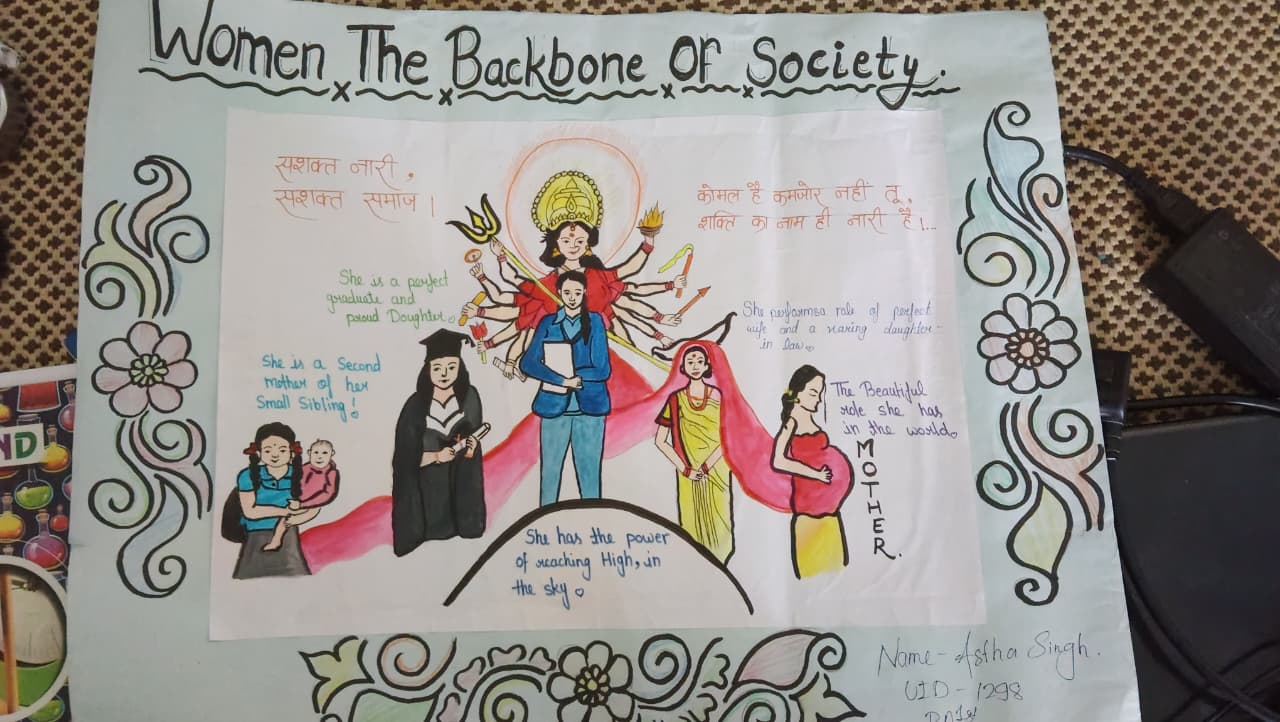 Women The Backbone Of Society.
सशक्त नारी,
सशक्त समाज।
कोमल है कमजोर नही तू,
शक्ति का नाम ही नारी है।...
She is a perfect
graduate and
proud Doughter
She performsa role of perfect
wife and a raring daughter-
in law
She is a Second
mother of her
Small Sibling!
The Beautiful
role she has
in the world
MOTHER.
She has the power
of reaching High, in
the sky
ND
Name- Astha Singh.
UID - 1298